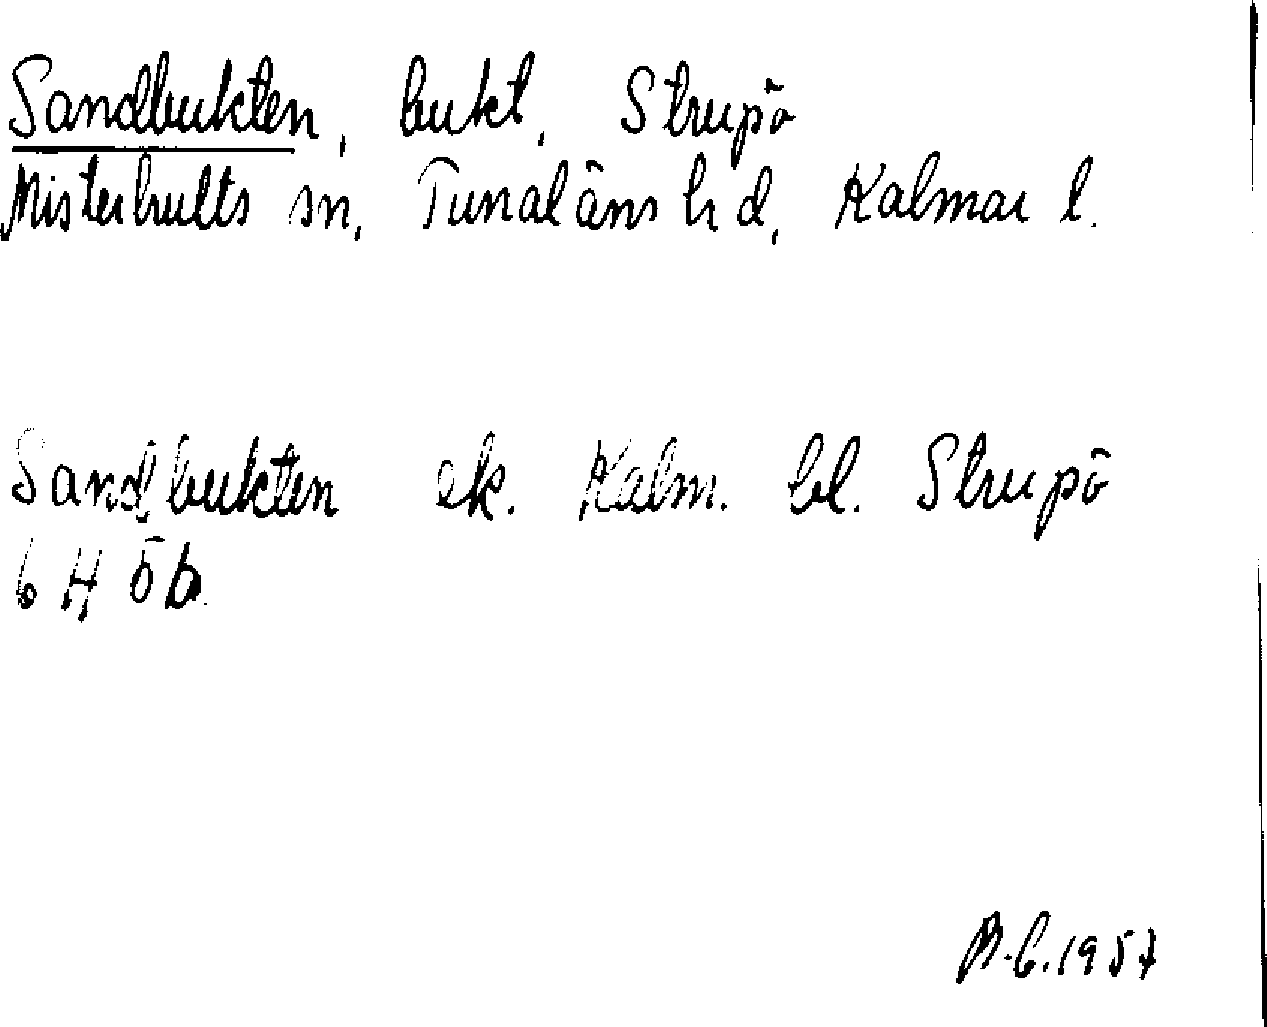 Sandbukten, bukt, Strupö
Misterhults sn, Tunaläns hd, Kalmar l.
Sandbukten ek. Kalm. bl. Strupö
6 H 5b
B.G.1957